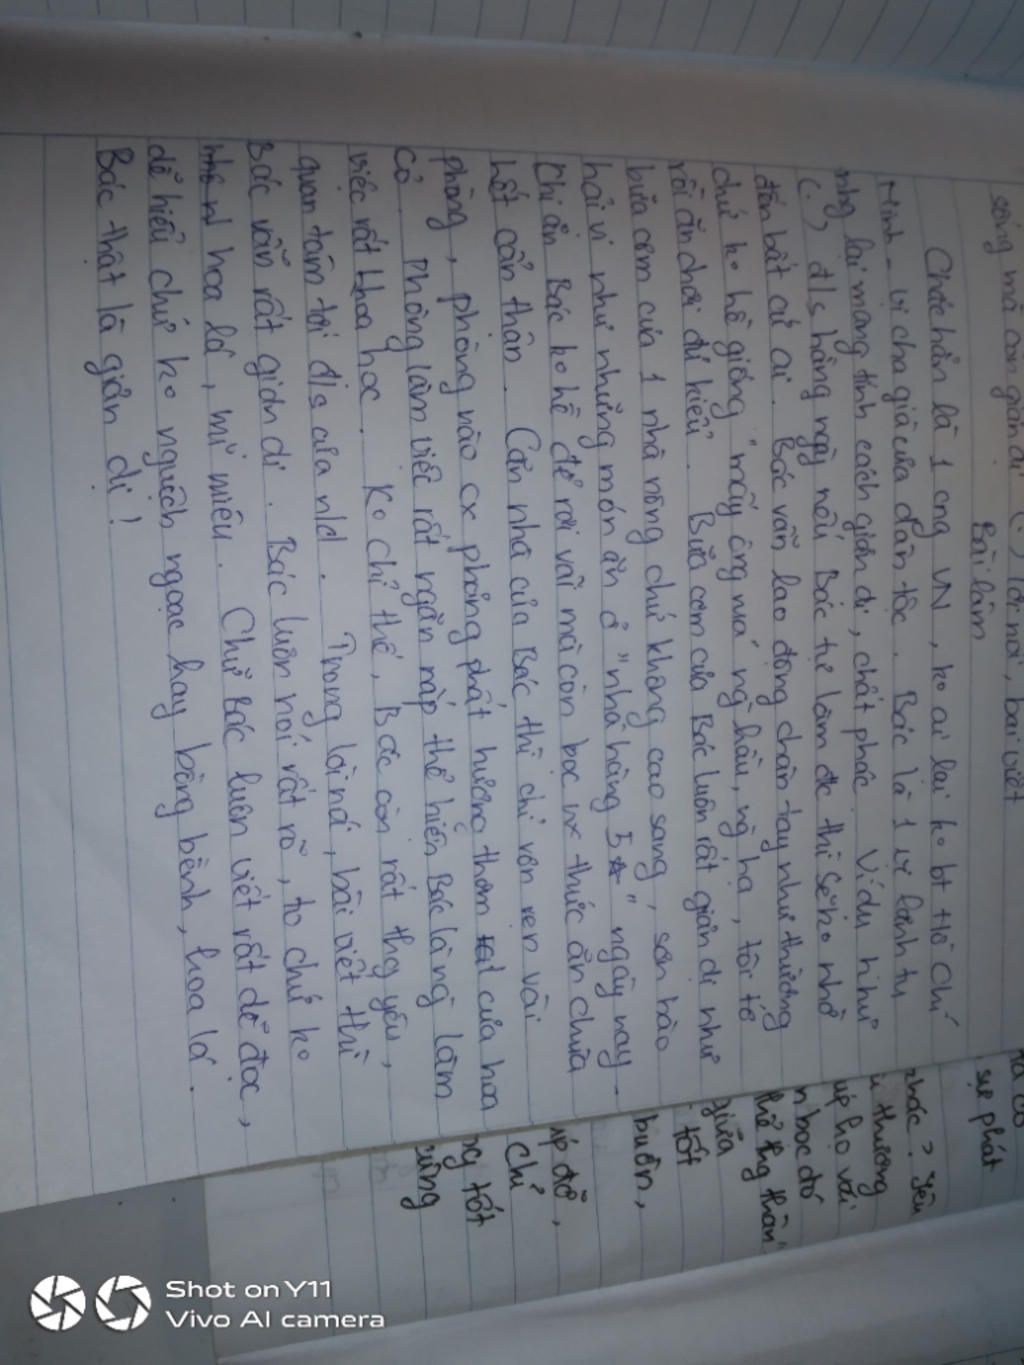 sống mà con giản dị (.) lời nói, bài viết
Bài làm
Chắc hẳn là 1 cng VN, ko ai lại ko bt Hồ Chí
Minh - vị cha già của dân tộc. Bác là 1 vị lãnh tụ
nhg lại mang tính cách giản dị, chất phác. Ví dụ như
(.) đ/s hằng ngày nếu Bác tự làm đc thì sẽ ko nhờ
đến bất cứ ai. Bác vẫn lao động chân tay như thường
chứ ko hề giống "mấy ông mà ng hầu, ng hạ, tôi tớ
rồi ăn chơi đủ kiểu. Bữa cơm của Bác luôn rất giản dị như
bữa cơm của 1 nhà nông chứ không cao sang, sơn hào
hải vị như những món ăn ở "nhà hàng 5 ☆" ngày nay.
Khi ăn Bác ko hề để rơi vãi mà còn bọc nx thức ăn chưa
hết cẩn thận. Căn nhà của Bác thì chỉ vỏn vẹn vài
phòng, phòng nào cx phảng phất hương thơm của hoa
cỏ. Phòng làm việc rất ngăn nắp thể hiện Bác là ng làm
việc rất khoa học. Ko chỉ thế, Bác còn rất thg yêu,
quan tâm tới đ/s của nld. Trong lời nói, bài viết thì
Bác vẫn rất giản dị. Bác luôn nói rất rõ, to chứ ko
hoa lá, mĩ miều. Chữ Bác luôn viết rất dễ đọc,
dễ hiểu chứ ko nguệch ngoạc hay bồng bềnh, hoa lá.
Bác thật là giản dị!
sự phát
khác > yêu
thương
bọc đó
giữa
tốt
buồn,
úp đỡ,
chỉ
ng tốt
cũng
Shot on Y11
Vivo AI camera